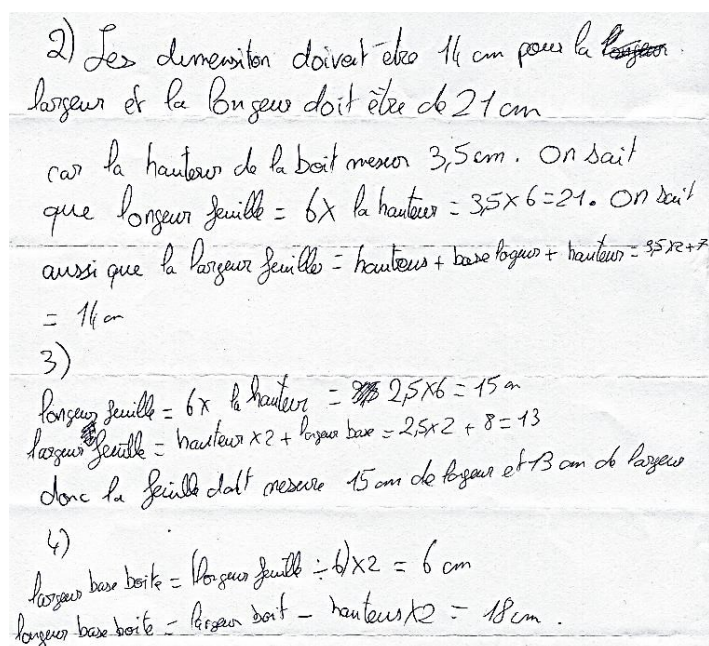 2) Les dimension doivent être 14 cm pour la
largeur et la longeur doit être de 21 cm
car la hauteur de la boit mesur 3,5 cm. On sait
que longeur feuille = 6x la hauteur = 3,5 x 6 = 21. On sait
aussi que la largeur feuille = hauteur + base + hauteur = 3,5 x 2 + 7
= 14 cm
3)
longeur feuille = 6x la hauteur = 2,5 x 6 = 15 cm
largeur feuille = hauteur x 2 + base = 2,5 x 2 + 8 = 13
donc la feuille doit mesure 15 cm de longeur et 13 cm de largeur
4)
largeur base boite = (longeur feuille ÷ 6) x 2 = 6 cm
longeur base boite = largeur boit - hauteur x 2 = 18 cm.